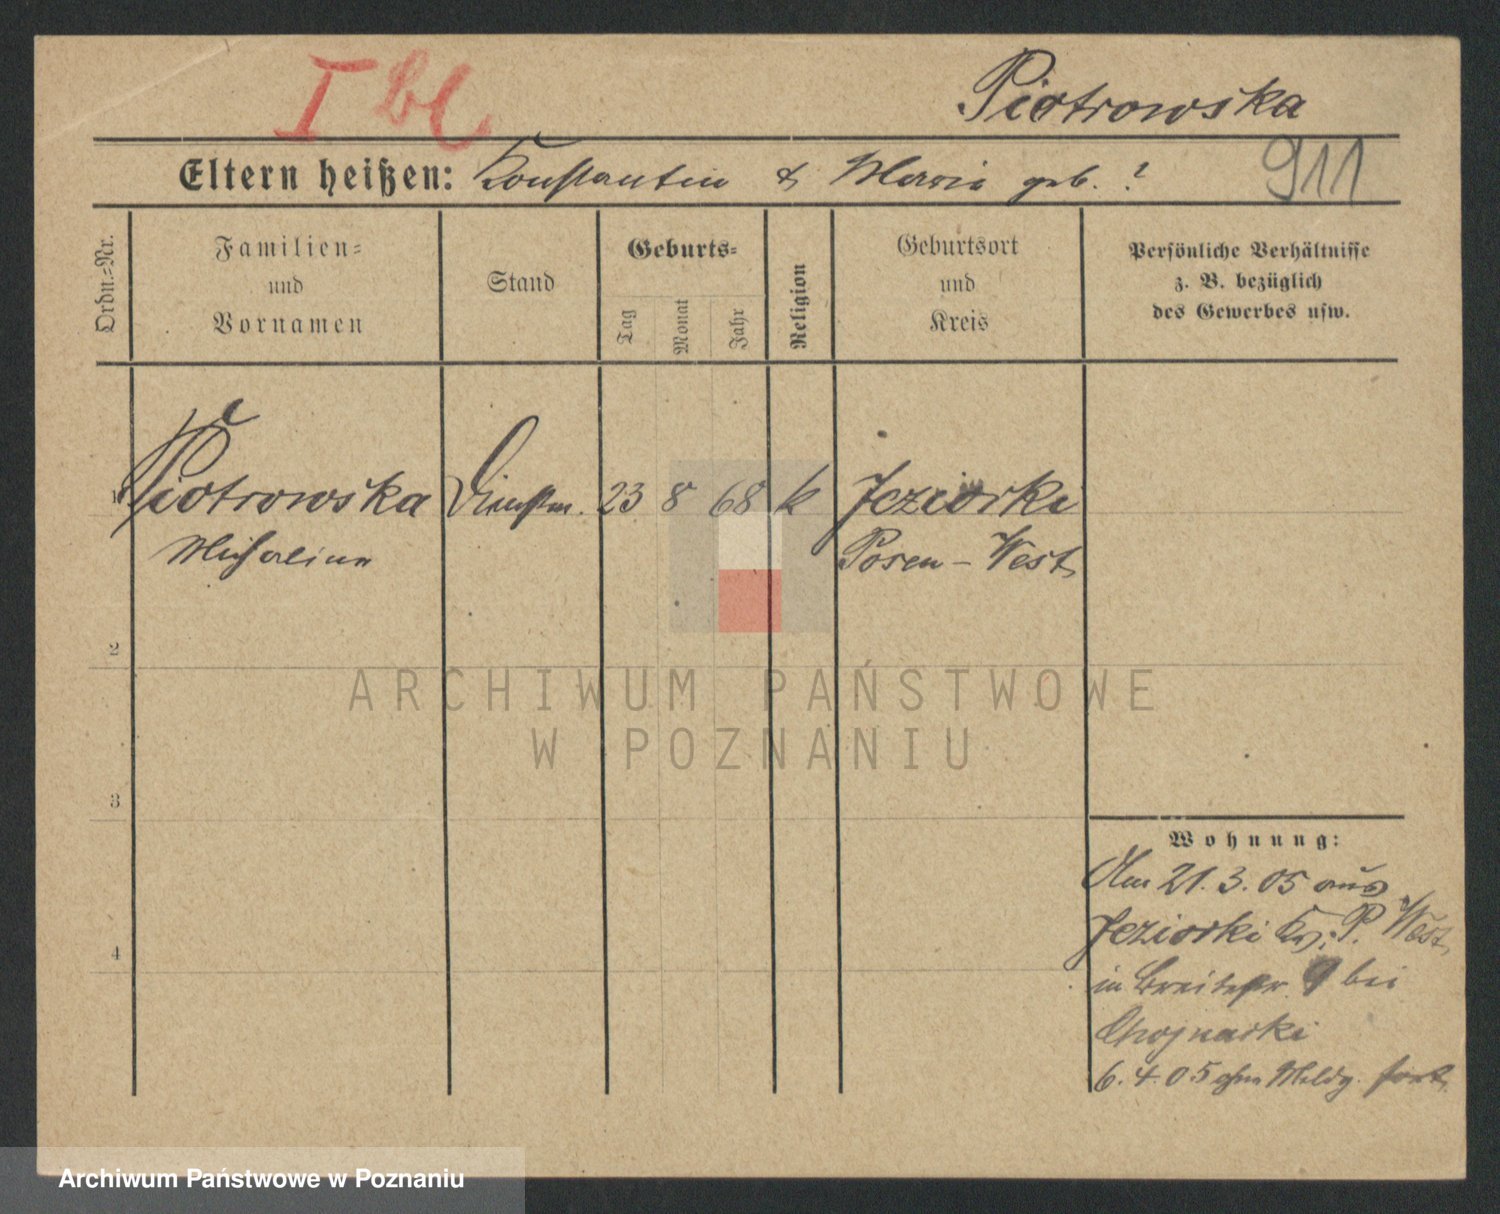 I bl
Piotrowska
Eltern heißen: Konstantin & Maria geb. ?
911
Ordn.=Nr.
Familien=
und
Vornamen
Stand
Geburts=
Tag
Monat
Jahr
Religion
Geburtsort
und
Kreis
Persönliche Verhältnisse
z. B. bezüglich
des Gewerbes usw.
1
Piotrowska
Dienstm.
23
8
68
k
Jeziorki
Michalina
Posen - West
ARCHIWUM PAŃSTWOWE
W POZNANIU
2
3
4
Wohnung:
Am 21. 3. 05 aus
Jeziorki Kr. P. West
in Breitestr. 9 bei
Chojnacki
6. 4. 05 ohne Meldg. fort.
Archiwum Państwowe w Poznaniu